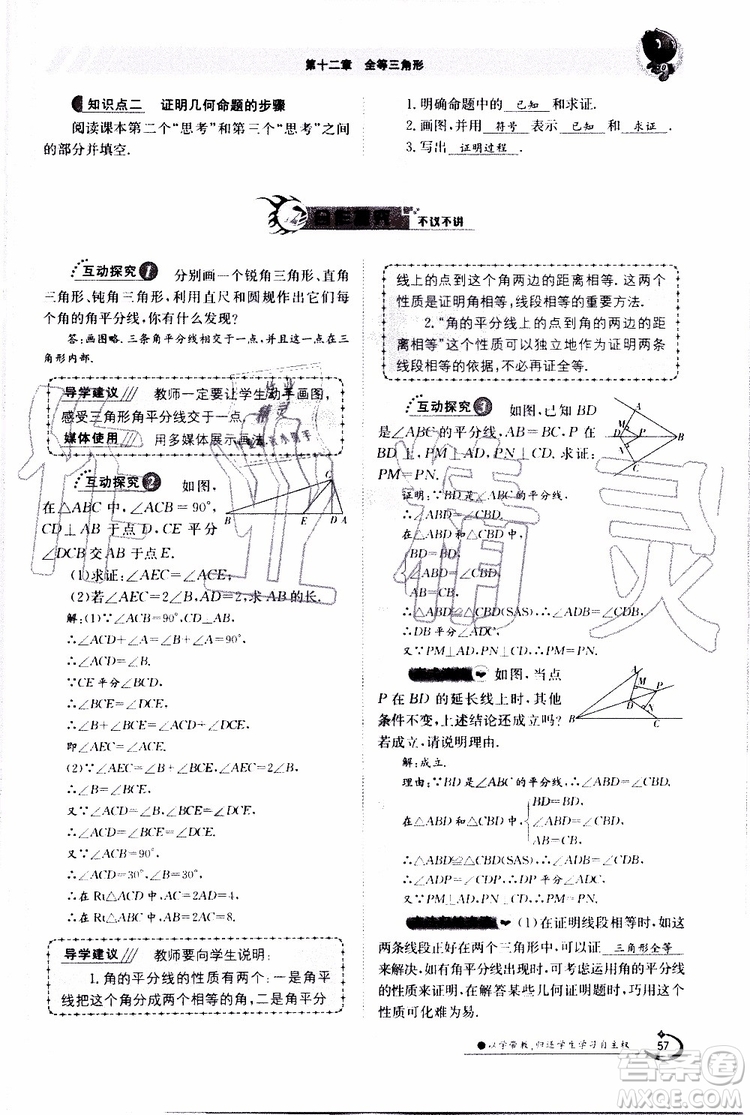 第十二章　全等三角形
知识点二　证明几何命题的步骤
阅读课本第二个“思考”和第三个“思考”之间
的部分并填空.
1. 明确命题中的 已知 和求证.
2. 画图,并用 符号 表示 已知 和 求证 .
3. 写出 证明过程 .
不议不讲
互动探究1　分别画一个锐角三角形、直角
三角形、钝角三角形,利用直尺和圆规作出它们每
个角的角平分线,你有什么发现?
答:画图略.三条角平分线相交于一点,且交点在三
角形内部.
导学建议　教师一定要让学生动手画图,
感受三角形角平分线交于一点.
媒体使用　用多媒体展示画法.
互动探究2　如图,
在△ABC中,∠ACB=90°,
CD⊥AB于点D,CE平分
∠DCB交AB于点E.
(1)求证:∠AEC=∠ACE;
(2)若∠AEC=2∠B,AD=2,求AB的长.
解:(1)∵∠ACB=90°,CD⊥AB,
∴∠ACD+∠A=∠B+∠A=90°,
∴∠ACD=∠B.
∵CE平分∠BCD,
∴∠BCE=∠DCE,
∴∠B+∠BCE=∠ACD+∠DCE,
即∠AEC=∠ACE.
(2)∵∠AEC=∠B+∠BCE,∠AEC=2∠B,
∴∠B=∠BCE.
又∵∠ACD=∠B,∠BCE=∠DCE,
∴∠ACD=∠BCE=∠DCE.
又∵∠ACB=90°,
∴∠ACD=30°,∠B=30°,
∴在Rt△ACD中,AC=2AD=4,
∴在Rt△ABC中,AB=2AC=8.
导学建议　教师要向学生说明:
1.角的平分线的性质有两个:一是角平
分线把这个角分成两个相等的角,二是角平分
线上的点到这个角两边的距离相等.这两个
性质是证明角相等,线段相等的重要方法.
2.“角的平分线上的点到角的两边的距
离相等”这一结论可以独立地作为证明两条
线段相等的依据,不必再证全等.
互动探究3　如图,已知BD
是∠ABC的平分线,AB=BC,P在
BD上,PM⊥AD,PN⊥CD.求证:
PM=PN.
证明:∵BD是∠ABC的平分线,
∴∠ABD=∠CBD.
在△ABD和△CBD中,
BD=BD,
∠ABD=∠CBD,
AB=CB,
∴△ABD≌△CBD(SAS),∴∠ADB=∠CDB,
∴DB平分∠ADC,
又∵PM⊥AD,PN⊥CD,∴PM=PN.
如图,当点
P在BD的延长线上时,其他
条件不变,上述结论还成立吗?
若成立,请说明理由.
解:成立.
理由:∵BD是∠ABC的平分线,∴∠ABD=∠CBD.
BD=BD,
在△ABD和△CBD中,∠ABD=∠CBD,
AB=CB,
∴△ABD≌△CBD(SAS),∴∠ADB=∠CDB,
∴∠ADP=∠CDP(等角的补角相等).
又∵PM⊥AD,PN⊥CD,∴PM=PN.
(1)在证明线段相等时,如这
两条线段正好在两个三角形中,可以证 三角形全等
来解决,如有角平分线出现时,可使用角的平分线
的性质来证明,在解答某些几何证明题时,巧用这个
性质可化难为易.
以学带教,归还学生学习自主权
57